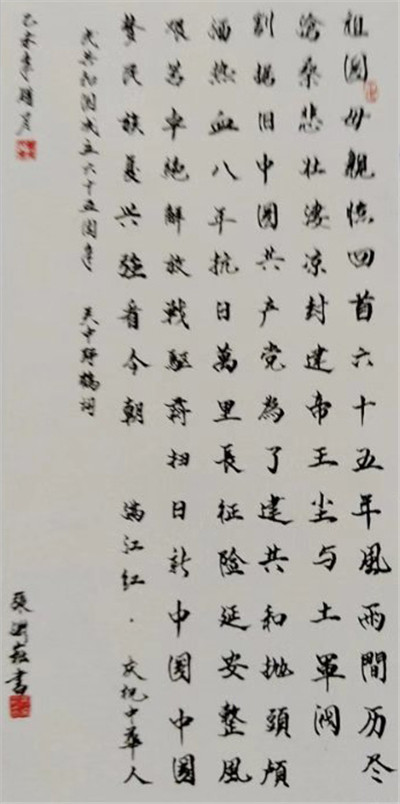 祖国母亲忆回首六十五年風雨間历尽
沧桑悲壮凄凉封建帝王尘与土軍阀
割据旧中国共产党為了建共和抛頭颅
洒热血八年抗日萬里長征险延安整風
艰苦卓绝解放戰驱蒋扫日新中国中国
梦民族复兴强看今朝 满江红·庆祝中華人
民共和国成立六十五周年 吴中野鹤词
乙未年
書